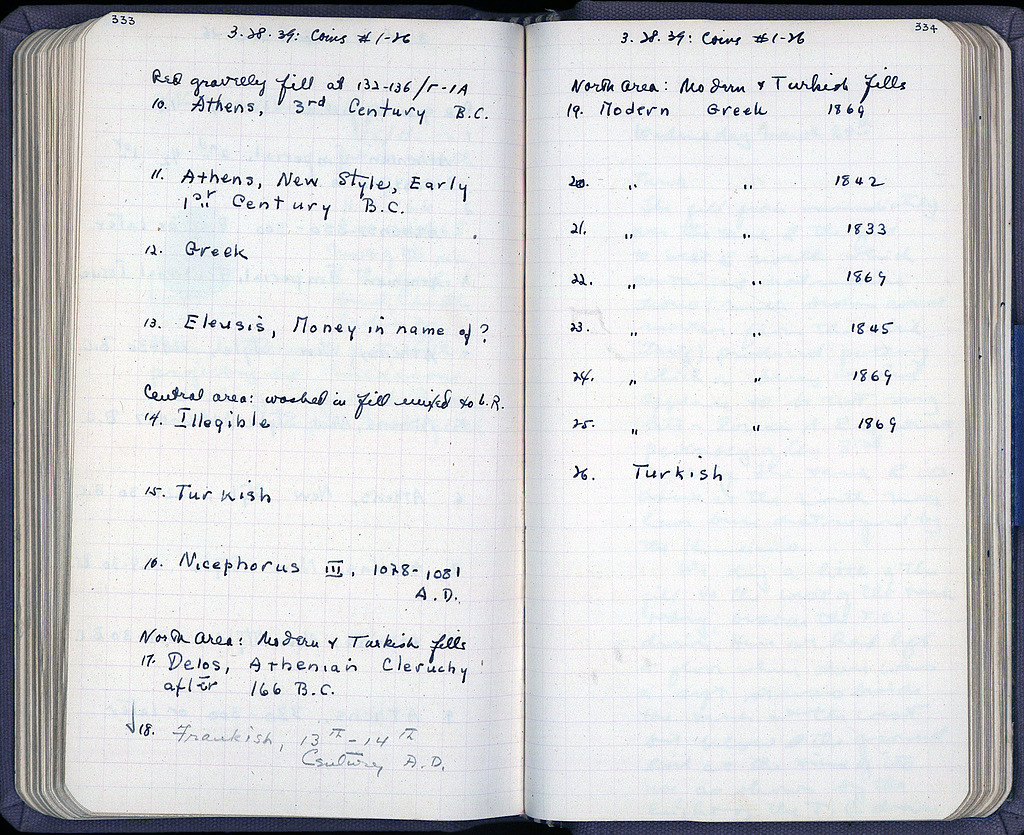 333
3.28.39: Coins #1-26
Red gravelly fill at 132-136/Γ-1A
10. Athens, 3rd Century B.C.
11. Athens, New Style, Early
1st Century B.C.
12. Greek
13. Eleusis, Money in name of?
Central area: washed in fill mixed to L.R.
14. Illegible
15. Turkish
16. Nicephorus III, 1078-1081
A.D.
North Area: Modern & Turkish fills
17. Delos, Athenian Cleruchy
after 166 B.C.
√18. Frankish, 13th-14th
Century A.D.
334
3.28.39: Coins #1-26
North Area: Modern & Turkish fills
19. Modern Greek 1869
20. " " 1842
21. " " 1833
22. " " 1869
23. " " 1845
24. " " 1869
25. " " 1869
26. Turkish